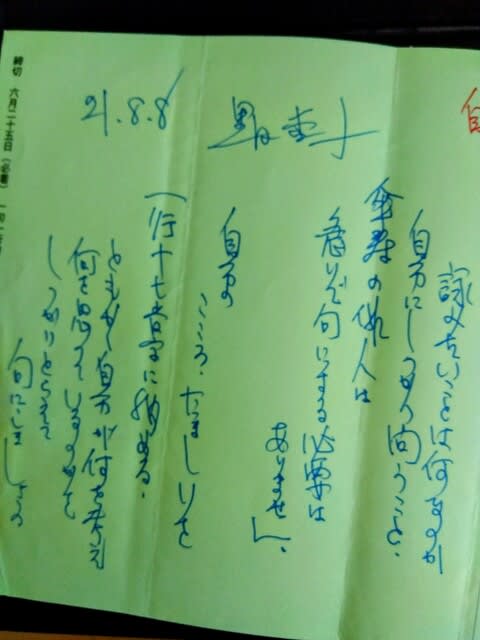 詠みたいことは何なのか
自分にしっかり問うこと。
傘寿の俳人は
急いで句にする必要は
ありません。
自分の
こころ、たましいを
一行十七音に込める。
ともかく自分が何を考え
何を思っているのかを
しっかりとらえて
句にしましょう
黒田杏子
21.8.8
締切 六月二十五日(必着)